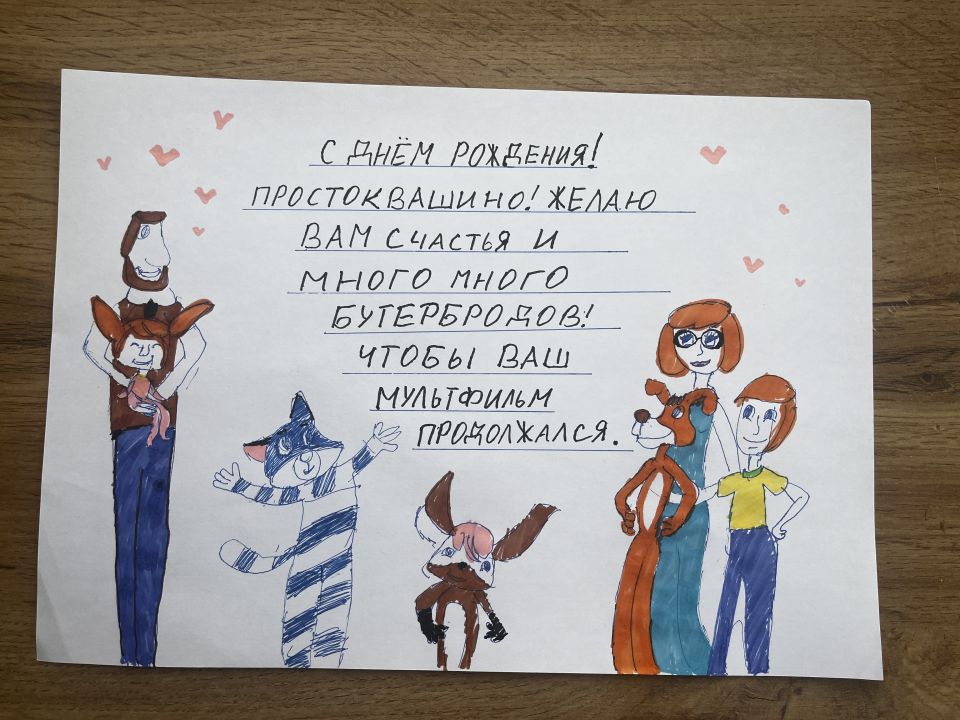 С ДНЁМ РОЖДЕНИЯ!
ПРОСТОКВАШИНО! ЖЕЛАЮ
ВАМ СЧАСТЬЯ И
МНОГО МНОГО
БУТЕРБРОДОВ!
ЧТОБЫ ВАШ
МУЛЬТФИЛЬМ
ПРОДОЛЖАЛСЯ.